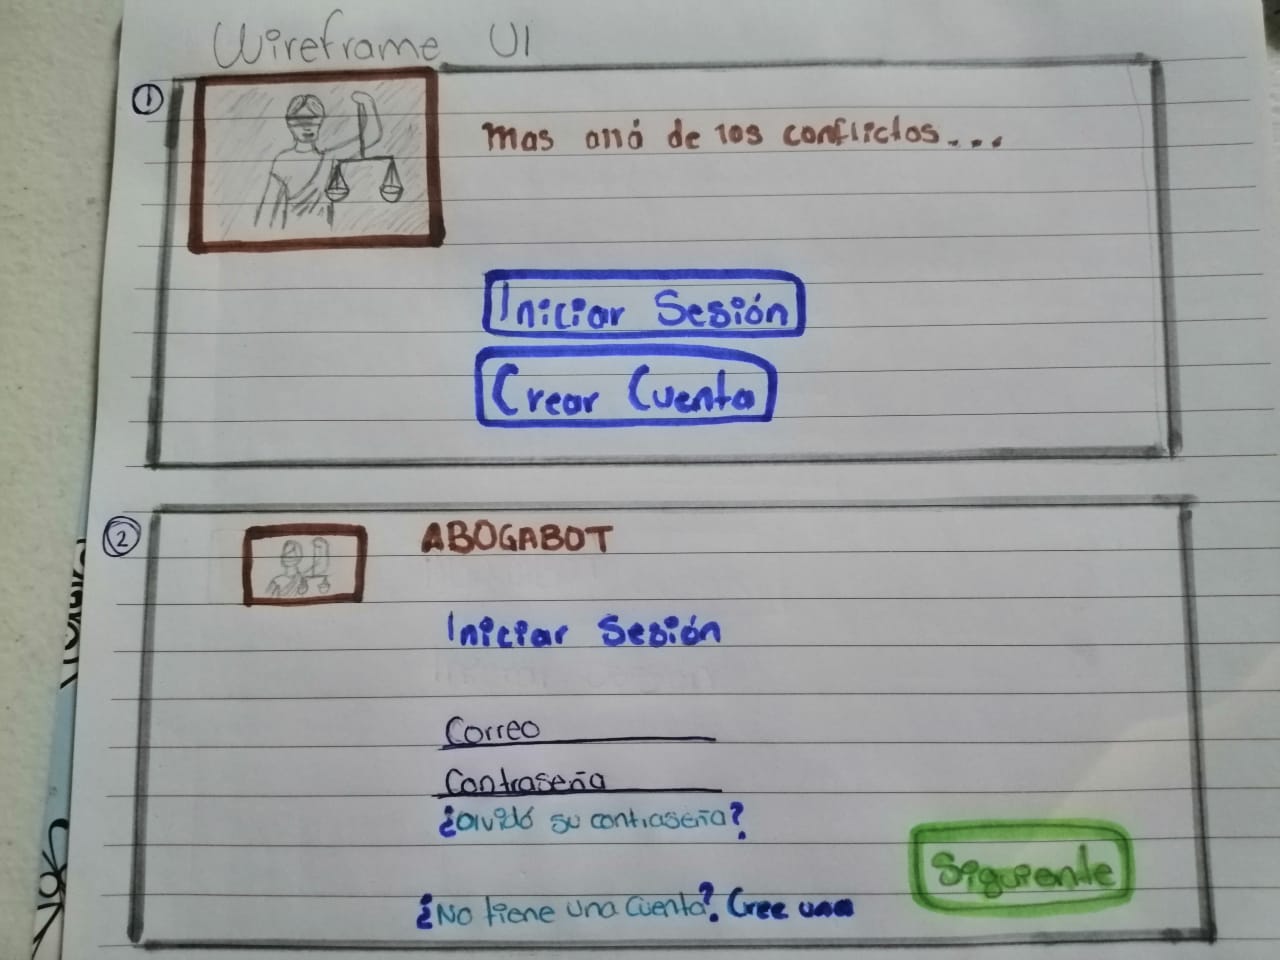 Wireframe UI
1
Mas allá de los conflictos...
Iniciar Sesión
Crear Cuenta
2
ABOGABOT
Iniciar Sesión
Correo
Contraseña
¿Olvidó su contraseña?
Siguiente
¿No tiene una cuenta? Cree una